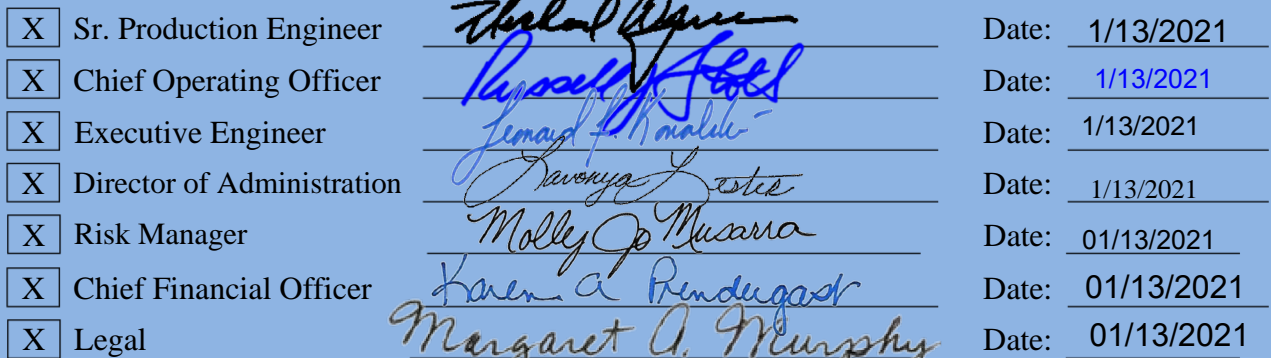 X Sr. Production Engineer Date: 1/13/2021
X Chief Operating Officer Russell Date: 1/13/2021
X Executive Engineer Date: 1/13/2021
X Director of Administration Lavonya Lester Date: 1/13/2021
X Risk Manager Molly Jo Musarra Date: 01/13/2021
X Chief Financial Officer Karen A Prendergast Date: 01/13/2021
X Legal Margaret A. Murphy Date: 01/13/2021